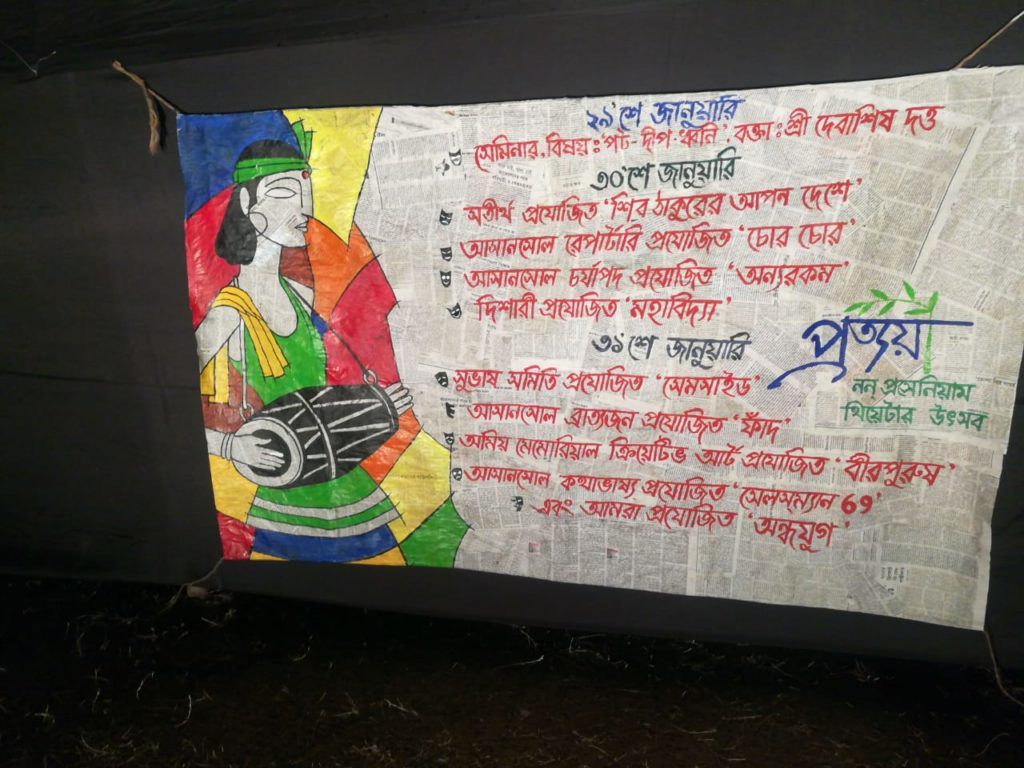 ২৯শে জানুয়ারি
সেমিনার, বিষয়ঃ 'পট-দীপ-ধ্বনি'. বক্তাঃ শ্রী দেবাশিষ দত্ত
৩০শে জানুয়ারি
অতীর্থ প্রযোজিত 'শিব ঠাকুরের আপন দেশে'
আসানসোল রেপার্টারি প্রযোজিত 'চোর চোর'
আসানসোল চর্যাপদ প্রযোজিত 'অন্যরকম'
দিশারী প্রযোজিত 'মহাবিদ্যা'
৩১শে জানুয়ারি
সুভাষ সমিতি প্রযোজিত 'সেমসাইড'
আসানসোল ব্রাত্যজন প্রযোজিত 'ফাঁদ'
অমিয় মেমোরিয়াল ক্রিয়েটিভ আর্ট প্রযোজিত 'বীরপুরুষ'
আসানসোল কথাভাষ্য প্রযোজিত 'সেলসম্যান 69'
এবং আমরা প্রযোজিত 'অন্ধযুগ'
প্রত্যয়
নন্ প্রসেনিয়াম
থিয়েটার উৎসব